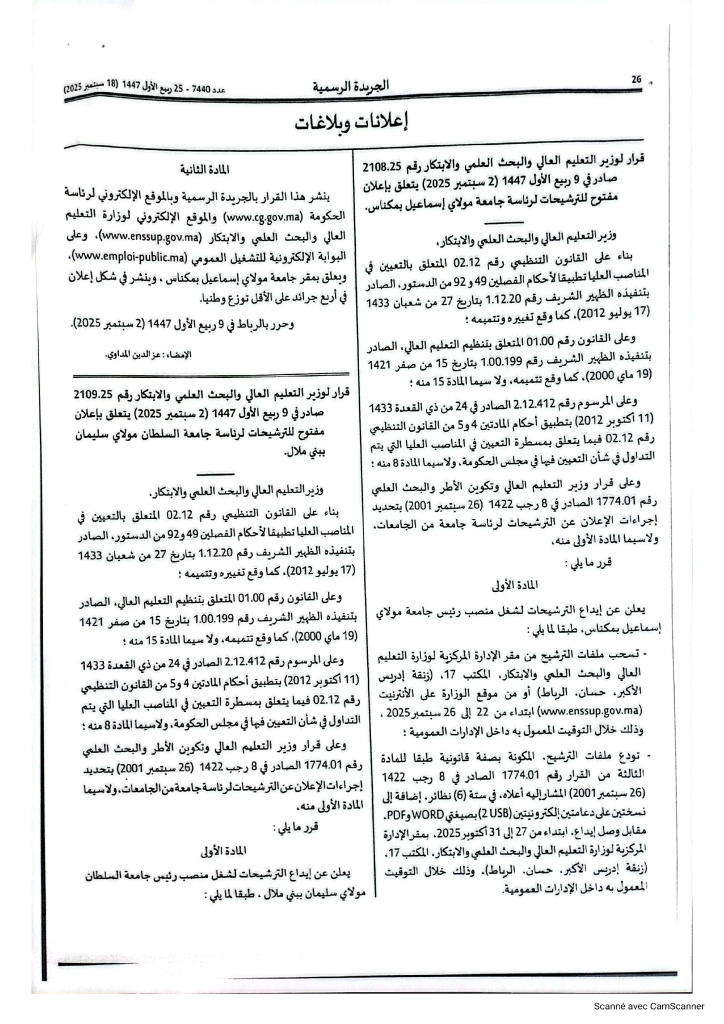 26
الجريدة الرسمية
عدد 7440 - 25 ربيع الأول 1447 (18 سبتمبر 2025)
إعلانات وبلاغات
قرار لوزير التعليم العالي والبحث العلمي والابتكار رقم 2108.25
صادر في 9 ربيع الأول 1447 (2 سبتمبر 2025) يتعلق بإعلان
مفتوح للترشيحات لرئاسة جامعة مولاي إسماعيل بمكناس.
وزير التعليم العالي والبحث العلمي والابتكار،
بناء على القانون التنظيمي رقم 02.12 المتعلق بالتعيين في
المناصب العليا تطبيقا لأحكام الفصلين 49 و92 من الدستور، الصادر
بتنفيذه الظهير الشريف رقم 1.12.20 بتاريخ 27 من شعبان 1433
(17 يوليو 2012)، كما وقع تغييره وتتميمه ؛
وعلى القانون رقم 01.00 المتعلق بتنظيم التعليم العالي، الصادر
بتنفيذه الظهير الشريف رقم 1.00.199 بتاريخ 15 من صفر 1421
(19 ماي 2000)، كما وقع تتميمه، ولا سيما المادة 15 منه ؛
وعلى المرسوم رقم 2.12.412 الصادر في 24 من ذي القعدة 1433
(11 أكتوبر 2012) بتطبيق أحكام المادتين 4 و5 من القانون التنظيمي
رقم 02.12 فيما يتعلق بمسطرة التعيين في المناصب العليا التي يتم
التداول في شأن التعيين فيها في مجلس الحكومة، ولاسيما المادة 8 منه ؛
وعلى قرار وزير التعليم العالي وتكوين الأطر والبحث العلمي
رقم 1774.01 الصادر في 8 رجب 1422 (26 سبتمبر 2001) بتحديد
إجراءات الإعلان عن الترشيحات لرئاسة جامعة من الجامعات،
ولاسيما المادة الأولى منه،
قرر ما يلي :
المادة الأولى
يعلن عن إيداع الترشيحات لشغل منصب رئيس جامعة مولاي
إسماعيل بمكناس، طبقا لما يلي :
- تسحب ملفات الترشيح من مقر الإدارة المركزية لوزارة التعليم
العالي والبحث العلمي والابتكار، المكتب 17، (زنقة إدريس
الأكبر، حسان، الرباط) أو من موقع الوزارة على الأنترنيت
(www.enssup.gov.ma) ابتداء من 22 إلى 26 سبتمبر 2025 ،
وذلك خلال التوقيت المعمول به داخل الإدارات العمومية ؛
- تودع ملفات الترشيح، المكونة بصفة قانونية طبقا للمادة
الثالثة من القرار رقم 1774.01 الصادر في 8 رجب 1422
(26 سبتمبر 2001) المشار إليه أعلاه، في ستة (6) نظائر، إضافة إلى
نسختين على دعامتين إلكترونيتين (2 USB) بصيغتي WORD وPDF،
مقابل وصل إيداع، ابتداء من 27 إلى 31 أكتوبر 2025، بمقر الإدارة
المركزية لوزارة التعليم العالي والبحث العلمي والابتكار، المكتب 17،
(زنقة إدريس الأكبر، حسان، الرباط)، وذلك خلال التوقيت
المعمول به داخل الإدارات العمومية.
المادة الثانية
ينشر هذا القرار بالجريدة الرسمية وبالموقع الإلكتروني لرئاسة
الحكومة (www.cg.gov.ma) والموقع الإلكتروني لوزارة التعليم
العالي والبحث العلمي والابتكار (www.enssup.gov.ma)، وعلى
البوابة الإلكترونية للتشغيل العمومي (www.emploi-public.ma)،
ويعلق بمقر جامعة مولاي إسماعيل بمكناس ، وينشر في شكل إعلان
في أربع جرائد على الأقل توزع وطنيا.
وحرر بالرباط في 9 ربيع الأول 1447 (2 سبتمبر 2025).
الإمضاء : عز الدين المداوي.
قرار لوزير التعليم العالي والبحث العلمي والابتكار رقم 2109.25
صادر في 9 ربيع الأول 1447 (2 سبتمبر 2025) يتعلق بإعلان
مفتوح للترشيحات لرئاسة جامعة السلطان مولاي سليمان
ببني ملال.
وزير التعليم العالي والبحث العلمي والابتكار،
بناء على القانون التنظيمي رقم 02.12 المتعلق بالتعيين في
المناصب العليا تطبيقا لأحكام الفصلين 49 و92 من الدستور، الصادر
بتنفيذه الظهير الشريف رقم 1.12.20 بتاريخ 27 من شعبان 1433
(17 يوليو 2012)، كما وقع تغييره وتتميمه ؛
وعلى القانون رقم 01.00 المتعلق بتنظيم التعليم العالي، الصادر
بتنفيذه الظهير الشريف رقم 1.00.199 بتاريخ 15 من صفر 1421
(19 ماي 2000)، كما وقع تتميمه، ولا سيما المادة 15 منه ؛
وعلى المرسوم رقم 2.12.412 الصادر في 24 من ذي القعدة 1433
(11 أكتوبر 2012) بتطبيق أحكام المادتين 4 و5 من القانون التنظيمي
رقم 02.12 فيما يتعلق بمسطرة التعيين في المناصب العليا التي يتم
التداول في شأن التعيين فيها في مجلس الحكومة، ولاسيما المادة 8 منه ؛
وعلى قرار وزير التعليم العالي وتكوين الأطر والبحث العلمي
رقم 1774.01 الصادر في 8 رجب 1422 (26 سبتمبر 2001) بتحديد
إجراءات الإعلان عن الترشيحات لرئاسة جامعة من الجامعات، ولاسيما
المادة الأولى منه،
قرر ما يلي :
المادة الأولى
يعلن عن إيداع الترشيحات لشغل منصب رئيس جامعة السلطان
مولاي سليمان ببني ملال ، طبقا لما يلي :
Scanné avec CamScanner